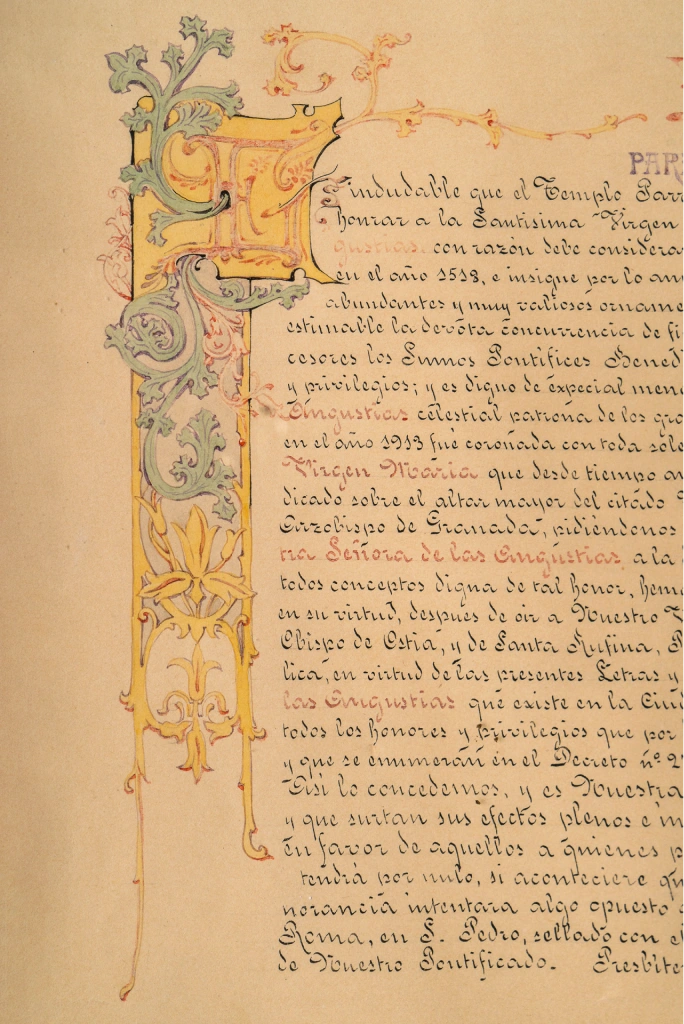 PAR
E
indudable que el Templo Parr
honrar a la Santisima Virgen
gustias. con razón debe considera
en el año 1518, e insigne por lo an
abundantes y muy valiosos orname
estimable la devota concurrencia de fi
cesores los Sumos Pontifices Bened
y privilegios; y es digno de especial men
Angustias celestial patrona de los gra
en el año 1913 fué coronada con toda sole
Virgen María que desde tiempo an
dicado sobre el altar mayor del citado
Arzobispo de Granada, pidiéndonos
tra Señora de las Angustias, a la
todos conceptos digna de tal honor, hem
en su virtud, después de oir a Nuestro V
Obispo de Ostia, y de Santa Rufina, P
lica, en virtud de las presentes Letras y
las Angustias que existe en la Ciud
todos los honores y privilegios que por
y que se enumerán en el Decreto nº 2
Asi lo concedemos, y es Nuestra
y que surtan sus efectos plenos e in
en favor de aquellos a quienes p
tendrá por nulo, si aconteciere qu
norancia intentara algo opuesto
Roma, en S. Pedro, sellado con el
de Nuestro Pontificado. Presbite